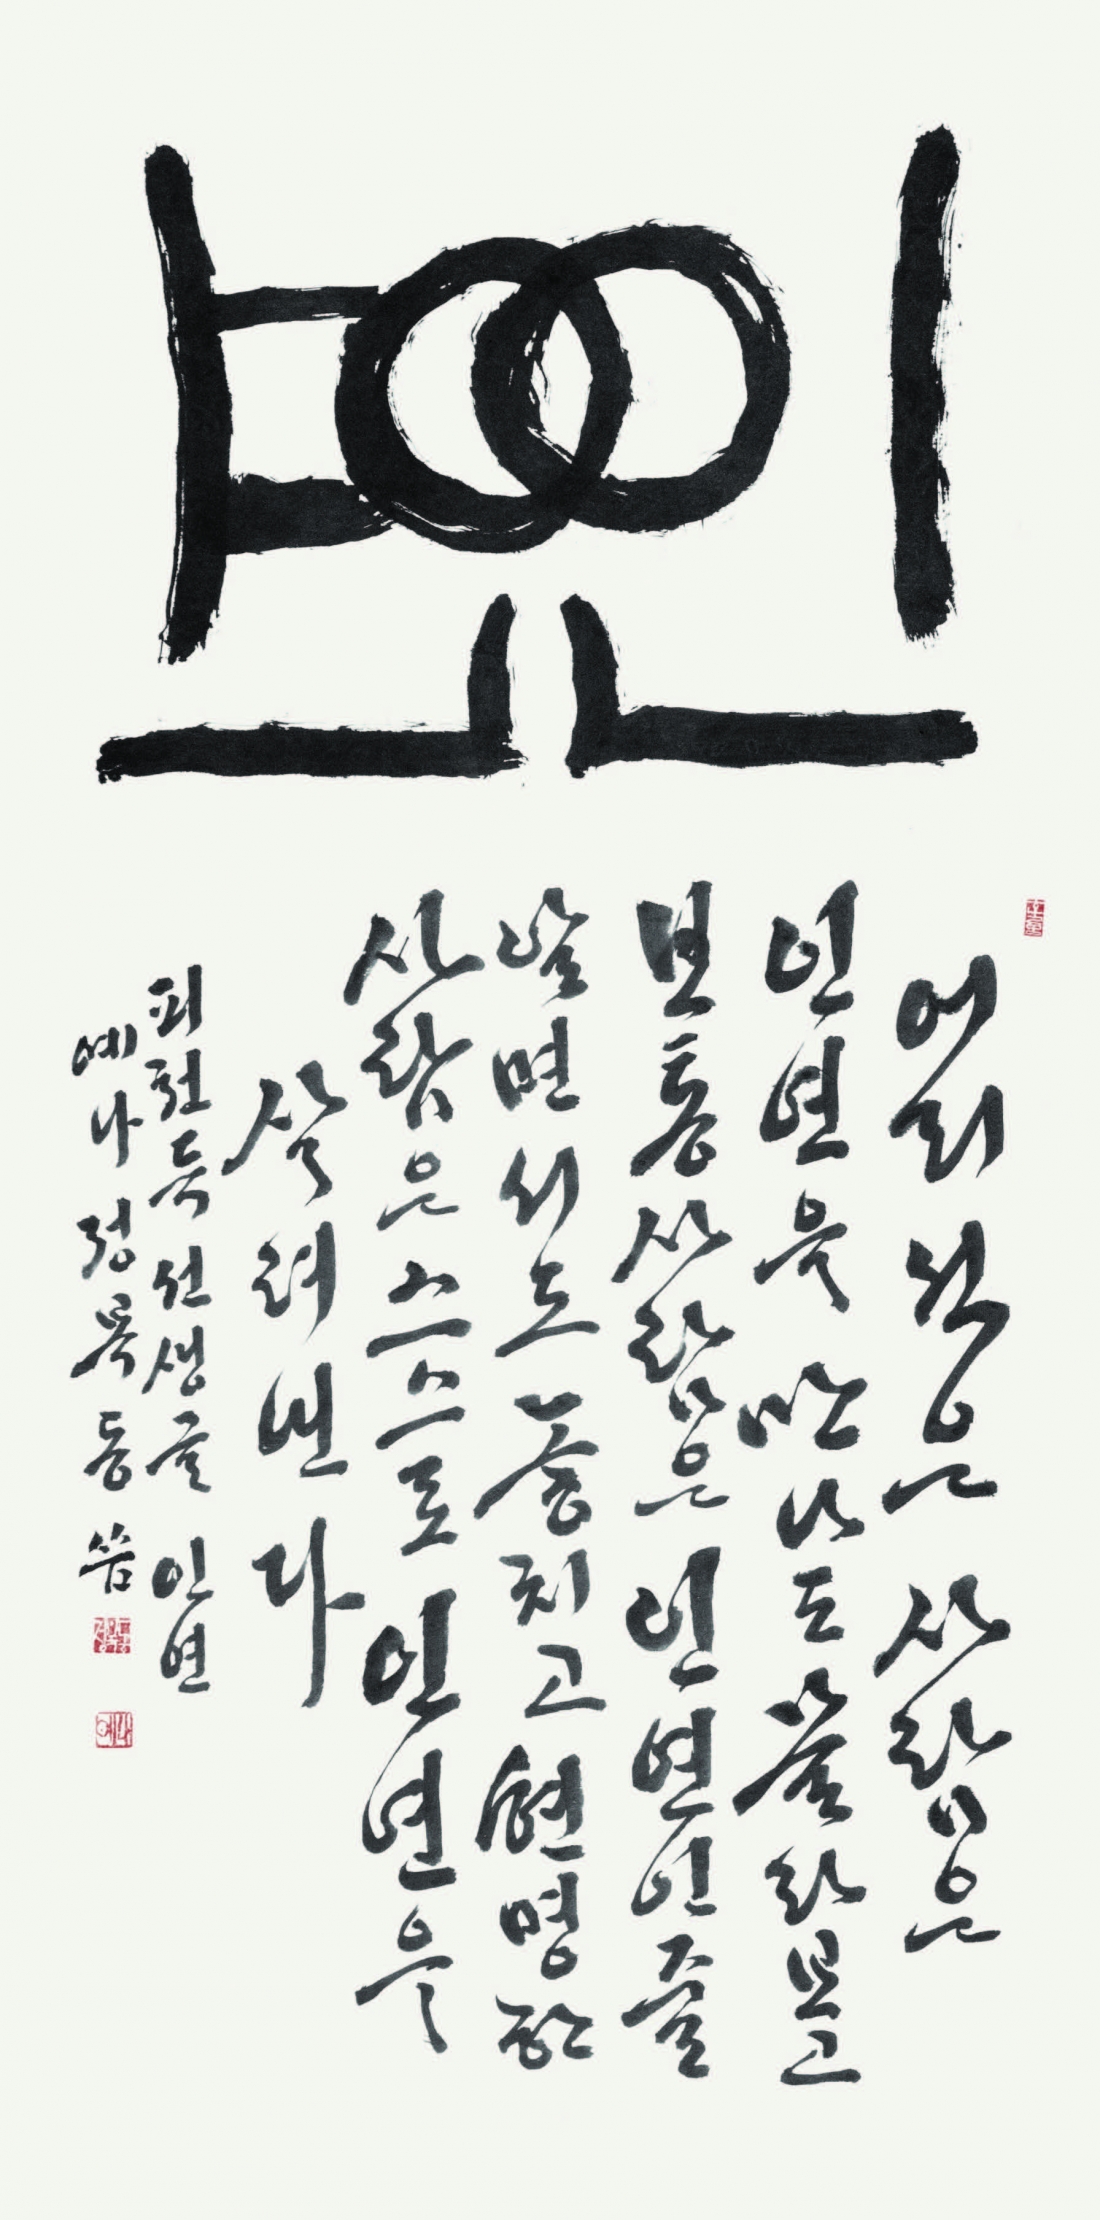 인연
어리석은 사람은
인연을 만나도 몰라보고
보통 사람은 인연인줄
알면서도 놓치고 현명한
사람은 스스로 인연을
살려낸다
피천득 선생글 인연
예나 정복동 씀